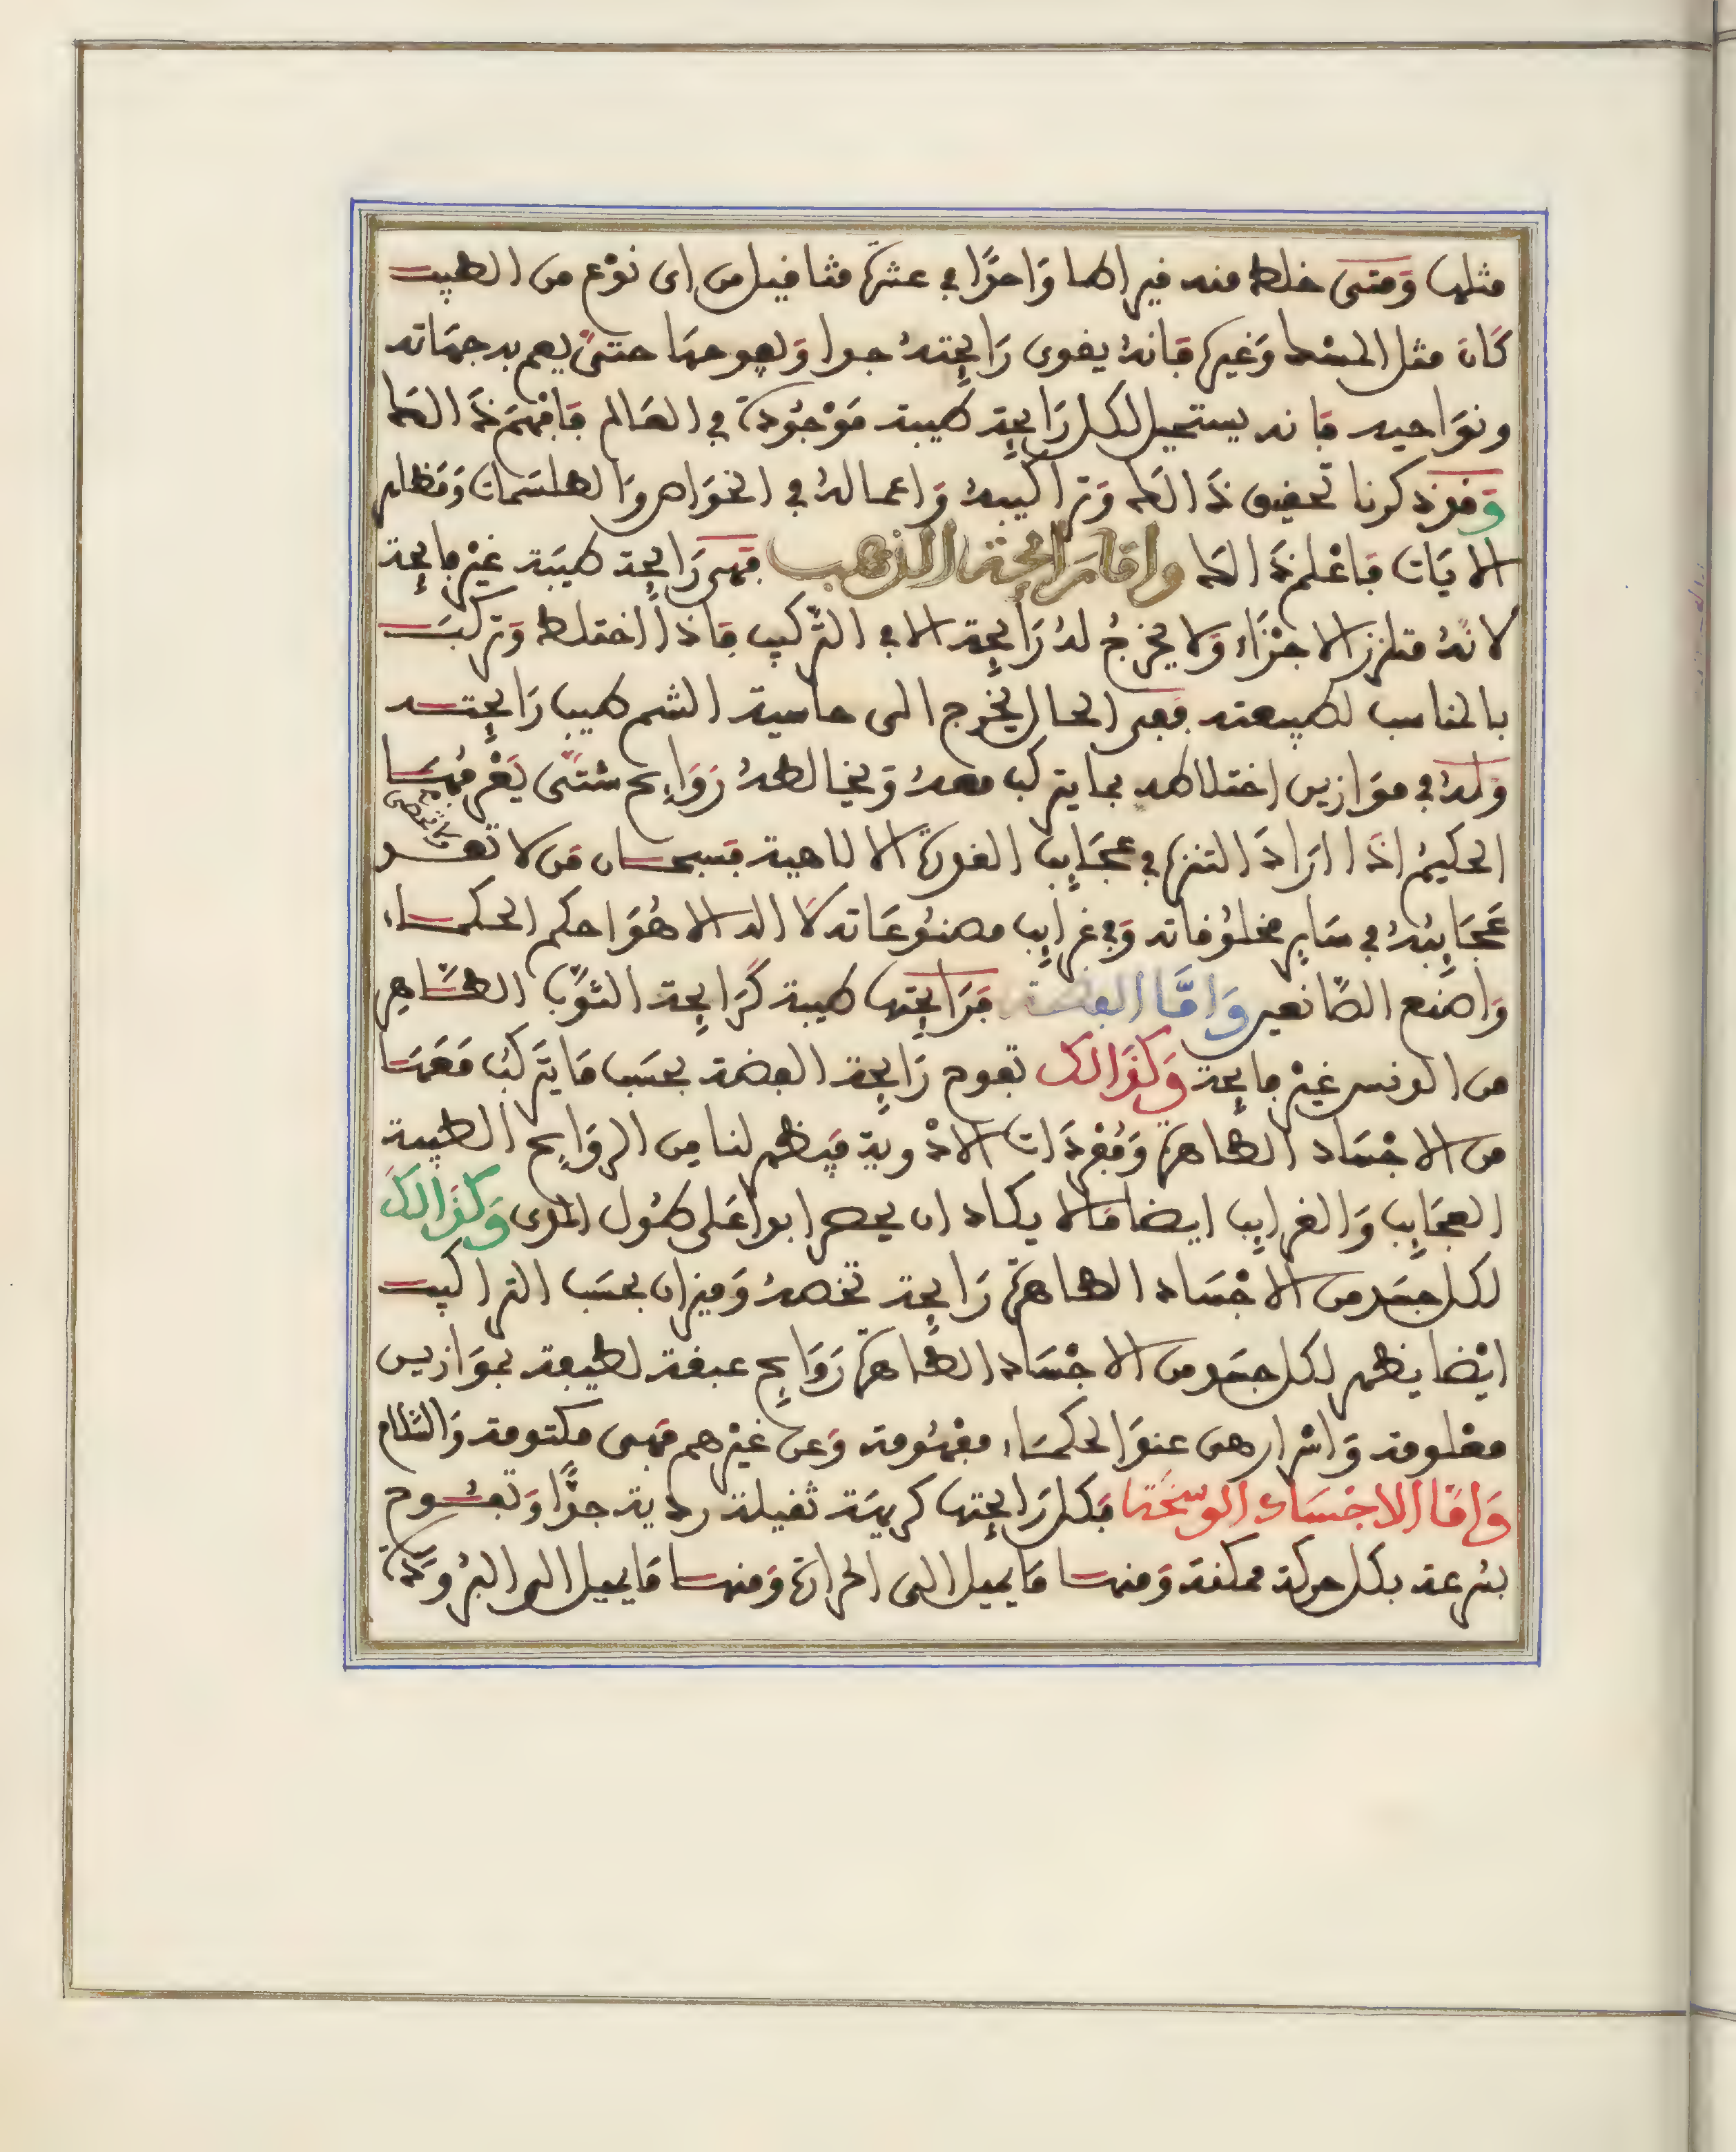 مثلها وَمتى خلط منه قيراطا وَاحدًا في عشرة مثاقيل من اى نوْع من الطيب
كَان مثل المسْك وَغيره فَانهُ يقوى رَايحتهُ جدا وَيفوحهَا حتىٰ يعم به جهَاته
ونوَاحيه فانه يستحيل لكل رَايحة طيبة مَوْجُودَة في العَالم فَافهَم ذَالك
وَقد ذكرنا تحقيق ذَالك وَتراكيبهُ وَاعمالهُ في الخوَاص وَالطلسَمات وَمَظاهر
الايَات فاعْلم ذَالك واما رايحة الذهب فهى رَايحة طيبَة غيْر فايحة
لانهُ متلزز الاجْزَاء وَلا يخْرجُ لهُ رَايحة الا في التركيب فاذا اختلط وَتركبَ
بالمناسب لطبيعته ففى الحال يخرج الى حاسية الشم طيب رَايحته
وَلهُ في موَازين اختلاطه بما يتركب معهُ وَيخالطهُ رَوَايح شتىٰ يَعْرفُهَا
الحكيمُ اذَا ارَادَ التنزه في عجَايب القدرة الالاهية فسبحان مَن لا تعد
ولا تحصى
عَجَايبُهُ في سَاير مخلوُقاته وَفي غرايب مصنوُعَاته لاَ اله الا هُوَ احكم الحكماء
وَاصنع الصَّانعين وَامَّا الفضة فرَايحتها طيبة كَرَايحة الثوْب الطَّاهِر
من الدنس غيْر فايحة وَكذَالك تفوح رَايحة الفضة بحسَب مَا يَتركب مَعَهَا
من الاجْسَاد الطاهرة وَمُفْرَدَات الادْوية فيَظهر لنا من الروَايح الطيبة
العجَايب وَالغرايب ايضا مَا لا يكاد ان يحصر ابدا عَلى طوُل المدى وَكذَالك
لكل جسَد من الاجْسَاد الطاهرة رَايحة تخصهُ وَميزان بحسَب التراكيب
ايْضا يظهر لكل جسَد من الاجْسَاد الطاهرة رَوَايح عبقة لطيفة بموَازين
معْلومة وَاسْرار هى عندَ الحكمَاء مفهُومة وَعن غيْرهم فهى مكتومة وَالسَّلام
وَامَّا الاجسَاد الوسخة فكل رَايحتها كريهَة ثقيلة ردية جدًّا وَتفوُح
بسُرعة بكل حركة ممكنة وَمنها مَا يميل الى الحرارة وَمنها مَا يميل الى البرُودَة